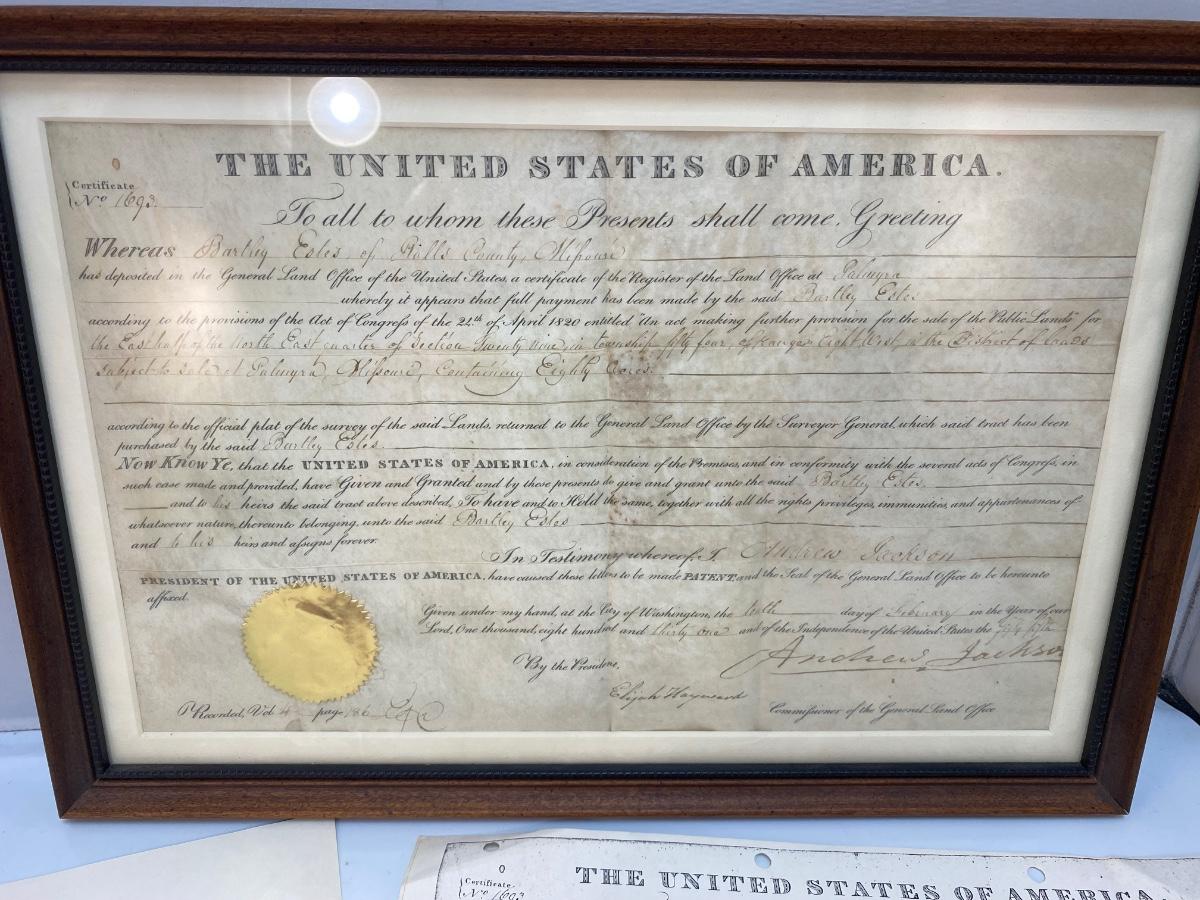 THE UNITED STATES OF AMERICA.
Certificate
No 1693
To all to whom these Presents shall come, Greeting
Whereas Bartley Estes of Ralls County, Missouri
has deposited in the General Land Office of the United States, a certificate of the Register of the Land Office at Palmyra
whereby it appears that full payment has been made by the said Bartley Estes
according to the provisions of the Act of Congress of the 24th of April 1820 entitled "An act making further provision for the sale of the Public Lands" for
the East half of the North East quarter of Section Twenty Nine, in township fifty four, of Range Eight West, in the District of Lands
Subject to sale at Palmyra, Missouri, Containing Eighty Acres.
according to the official plat of the survey of the said Lands, returned to the General Land Office by the Surveyor General, which said tract has been
purchased by the said Bartley Estes
Now Know Ye, that the UNITED STATES OF AMERICA, in consideration of the Premises, and in conformity with the several acts of Congress, in
such case made and provided, have Given and Granted and by these presents do give and grant unto the said Bartley Estes
and to his heirs the said tract above described, To have and to Hold the same, together with all the rights privileges, immunities, and appurtenances of
whatsoever nature, thereunto belonging, unto the said Bartley Estes
and to his heirs and assigns forever.
In Testimony whereof, I Andrew Jackson
PRESIDENT OF THE UNITED STATES OF AMERICA, have caused these letters to be made PATENT, and the Seal of the General Land Office to be hereunto
affixed.
Given under my hand, at the City of Washington, the tenth day of February in the Year of our
Lord, One thousand, eight hundred and thirty one and of the Independence of the United States the fifty fifth
Andrew Jackson
By the President,
Elijah Hayward
Commissioner of the General Land Office
Recorded, Vol 4 page 186
Certificate
No 1693
THE UNITED STATES OF AMERICA.